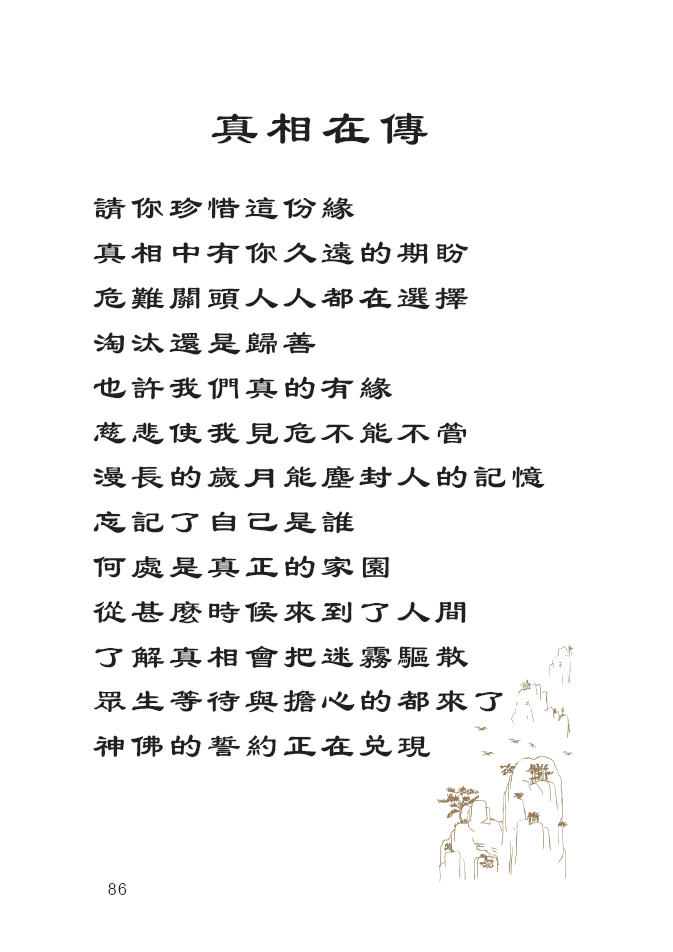 真相在傳
請你珍惜這份緣
真相中有你久遠的期盼
危難關頭人人都在選擇
淘汰還是歸善
也許我們真的有緣
慈悲使我見危不能不管
漫長的歲月能塵封人的記憶
忘記了自己是誰
何處是真正的家園
從甚麼時候來到了人間
了解真相會把迷霧驅散
眾生等待與擔心的都來了
神佛的誓約正在兌現
86